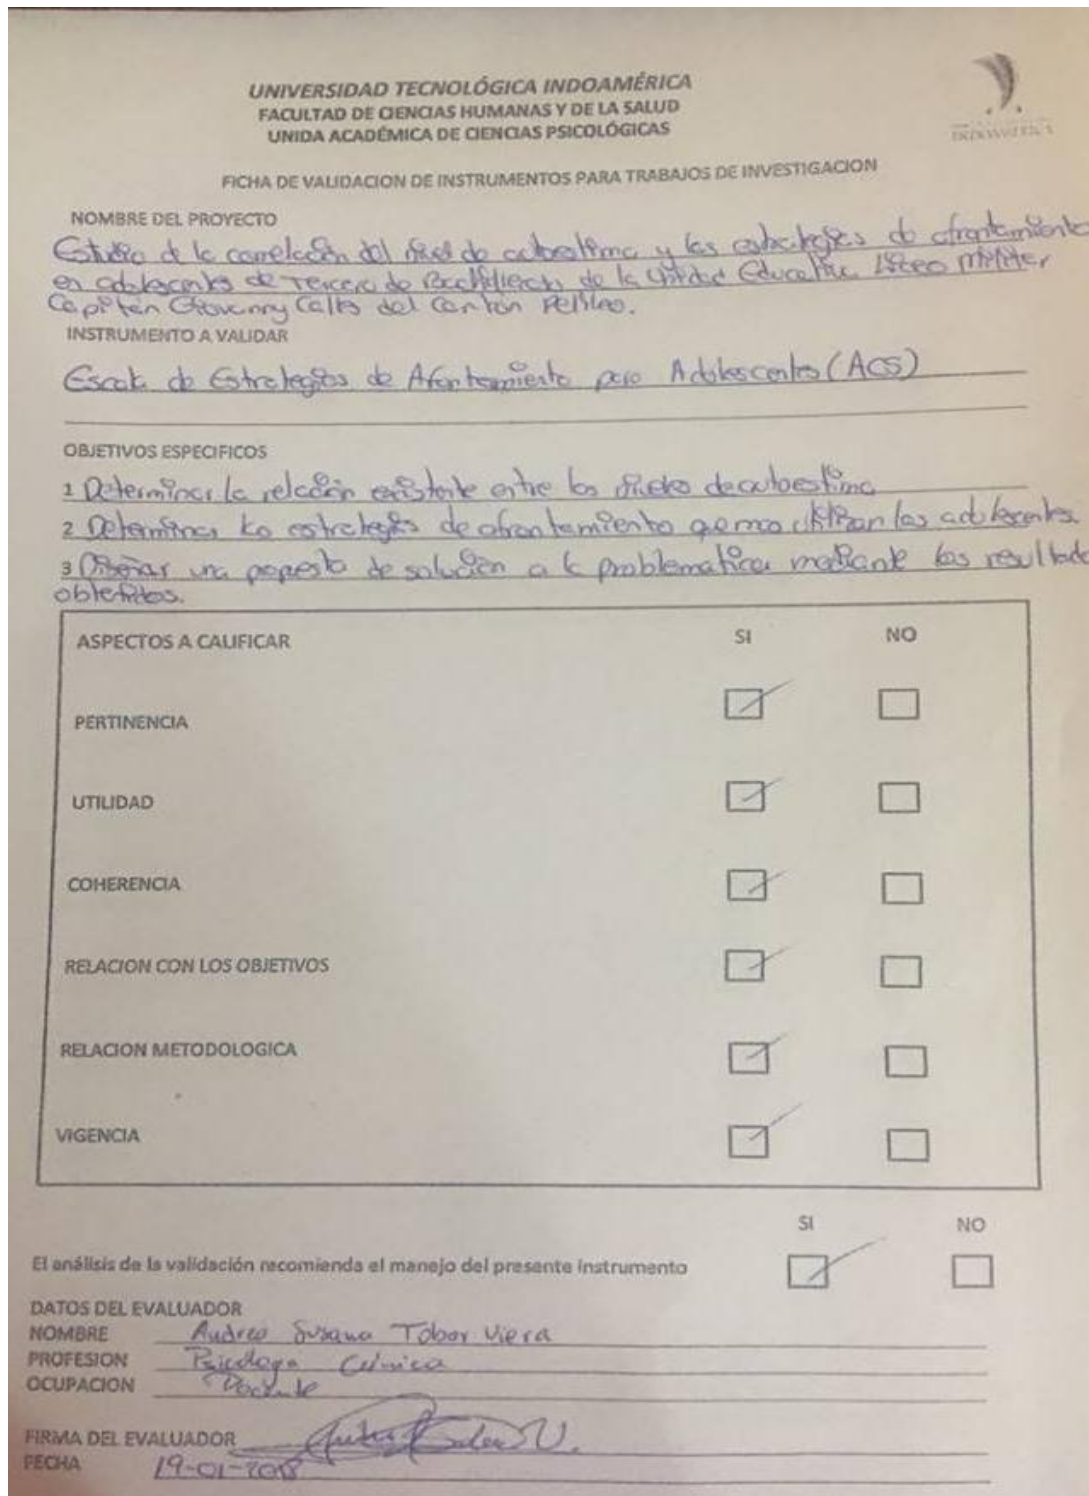 UNIVERSIDAD TECNOLÓGICA INDOAMÉRICA
FACULTAD DE CIENCIAS HUMANAS Y DE LA SALUD
UNIDA ACADÉMICA DE CIENCIAS PSICOLÓGICAS
INDOAMÉRICA
FICHA DE VALIDACION DE INSTRUMENTOS PARA TRABAJOS DE INVESTIGACION
NOMBRE DEL PROYECTO
Estudio de la correlación del nivel de autoestima y las estrategias de afrontamiento
en adolescentes de Tercero de Bachillerato de la Unidad Educativa Liceo Militar
Capitán Giovanny Calles del Cantón Pelileo.
INSTRUMENTO A VALIDAR
Escala de Estrategias de Afrontamiento para Adolescentes (ACS)
OBJETIVOS ESPECIFICOS
1 Determinar la relación existente entre los niveles de autoestima
2 Determinar las estrategias de afrontamiento que mas utilizan los adolescentes.
3 Diseñar una propuesta de solución a la problematica mediante los resultado
obtenidos.
ASPECTOS A CALIFICAR SI NO
PERTINENCIA
UTILIDAD
COHERENCIA
RELACION CON LOS OBJETIVOS
RELACION METODOLOGICA
VIGENCIA
SI NO
El análisis de la validación recomienda el manejo del presente instrumento
DATOS DEL EVALUADOR
NOMBRE Andrea Susana Tobar Viera
PROFESION Psicóloga Clínica
OCUPACION Docente
FIRMA DEL EVALUADOR
FECHA 19-01-2018